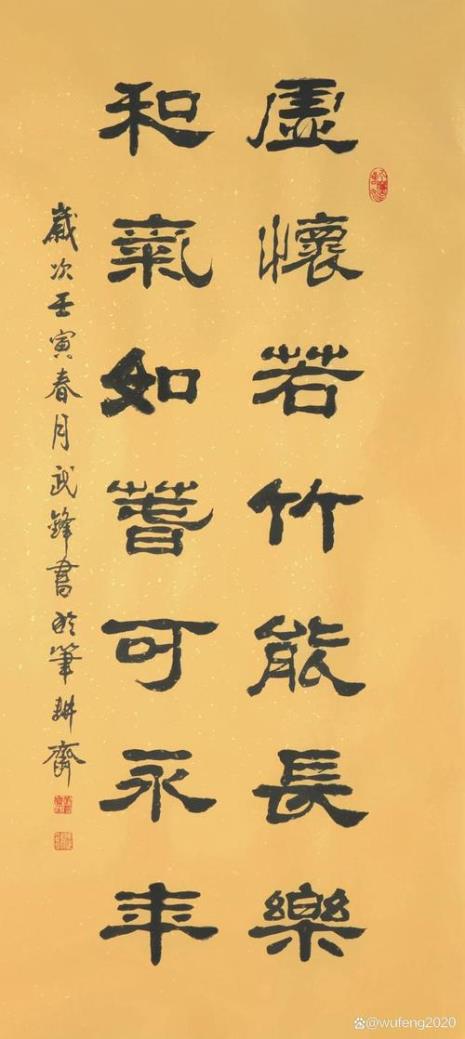 虛懷若竹能長樂
和氣如蓍可永年
歲次壬寅春月武鋒書於筆耕齋
@wufeng2020